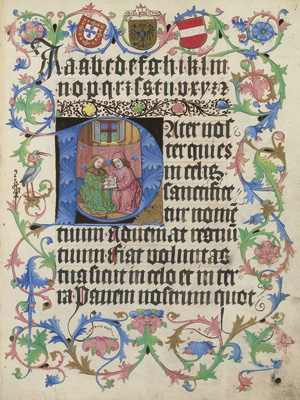 Aaabcdefghiklm
nopqrſstuvxyz
Pater noſ
ter qui es
in celis
sanctifice
tur nomē
tuum Adveniat regnū
tuum Fiat voluntas
tua sicut in celo et in ter
ra Panem nostrum quot